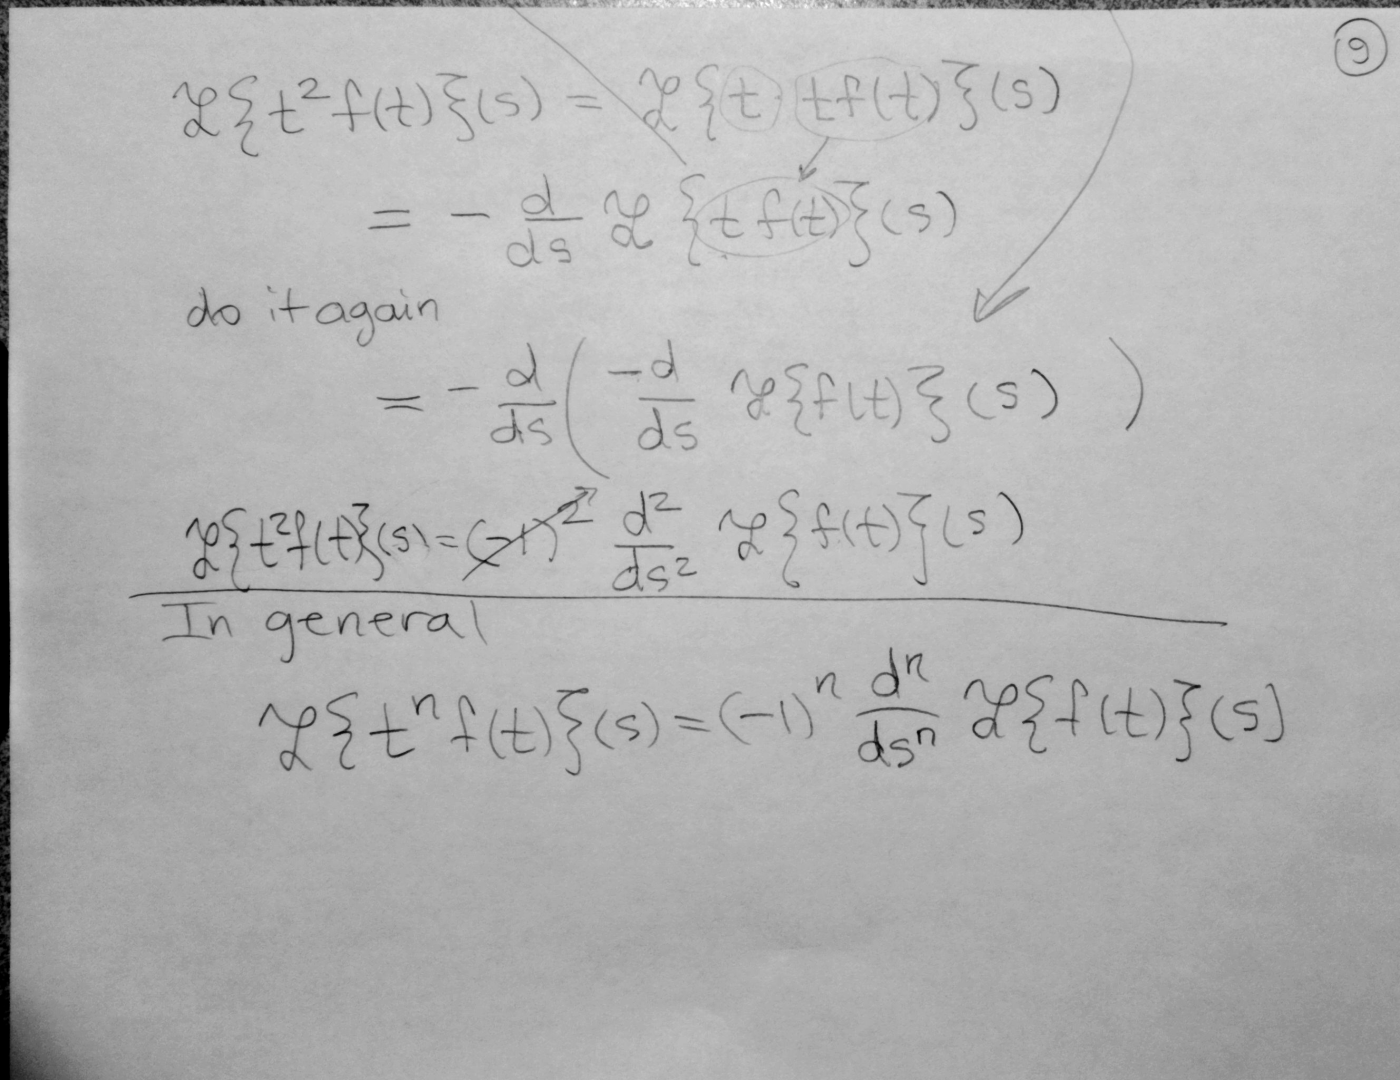 9
ℒ{t²f(t)}(s) = ℒ{t · tf(t)}(s)
= - d/ds ℒ{t f(t)}(s)
do it again
= - d/ds ( -d/ds ℒ{f(t)}(s) )
ℒ{t²f(t)}(s) = (-1)² d²/ds² ℒ{f(t)}(s)
In general
ℒ{tⁿf(t)}(s) = (-1)ⁿ dⁿ/dsⁿ ℒ{f(t)}(s)